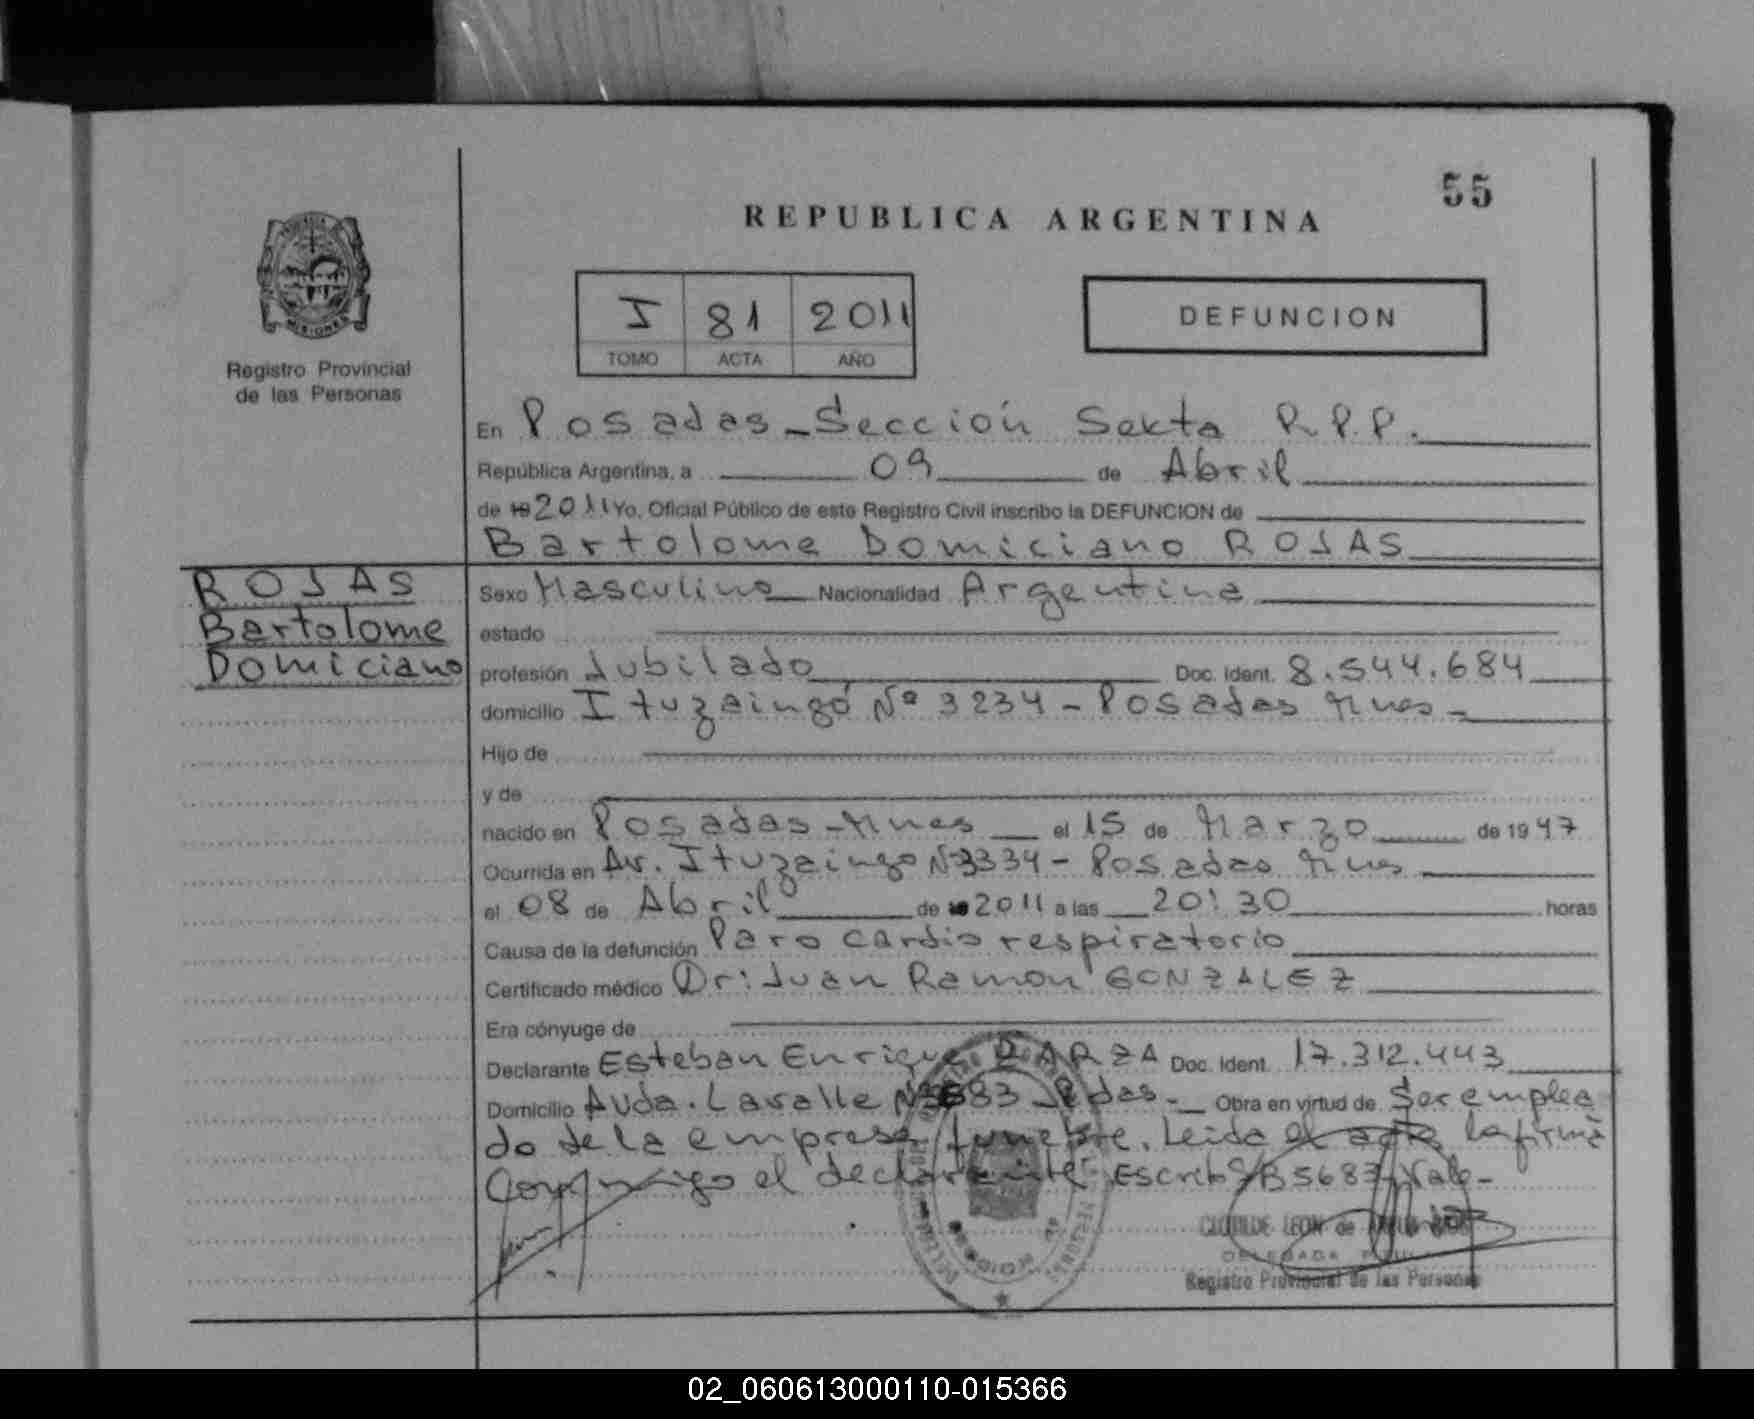 55
REPUBLICA ARGENTINA
I 81 2011
TOMO ACTA AÑO
DEFUNCION
MISIONES
Registro Provincial
de las Personas
En Posadas - Sección Sexta R.P.P.
República Argentina, a 09 de Abril
de 19 2011 Yo, Oficial Público de este Registro Civil inscribo la DEFUNCION de
Bartolome Domiciano ROJAS
ROJAS
Bartolome
Domiciano
Sexo Masculino Nacionalidad Argentina
estado
profesión Jubilado Doc. Ident. 8.544.684
domicilio Ituzaingó Nº 3234 - Posadas Mnes -
Hijo de
y de
nacido en Posadas - Mnes el 15 de Marzo de 1947
Ocurrida en Av. Ituzaingo Nº 3334 - Posadas Mnes
el 08 de Abril de 19 2011 a las 20:30 horas
Causa de la defunción Paro cardio respiratorio
Certificado médico Dr: Juan Ramon GONZALEZ
Era cónyuge de
Declarante Esteban Enrique Doc. Ident. 17.312.443
Domicilio Avda. Lavalle Nº 5683 - Pdas. - Obra en virtud de Ser emplea
do de la empresa funebre. Leida el acta la firma
Conmigo el declarante Escrito S/B 5683 - Vale -
CLOTILDE LEON de
DELEGADA TITULAR
Registro Provincial de las Personas
02_060613000110-015366